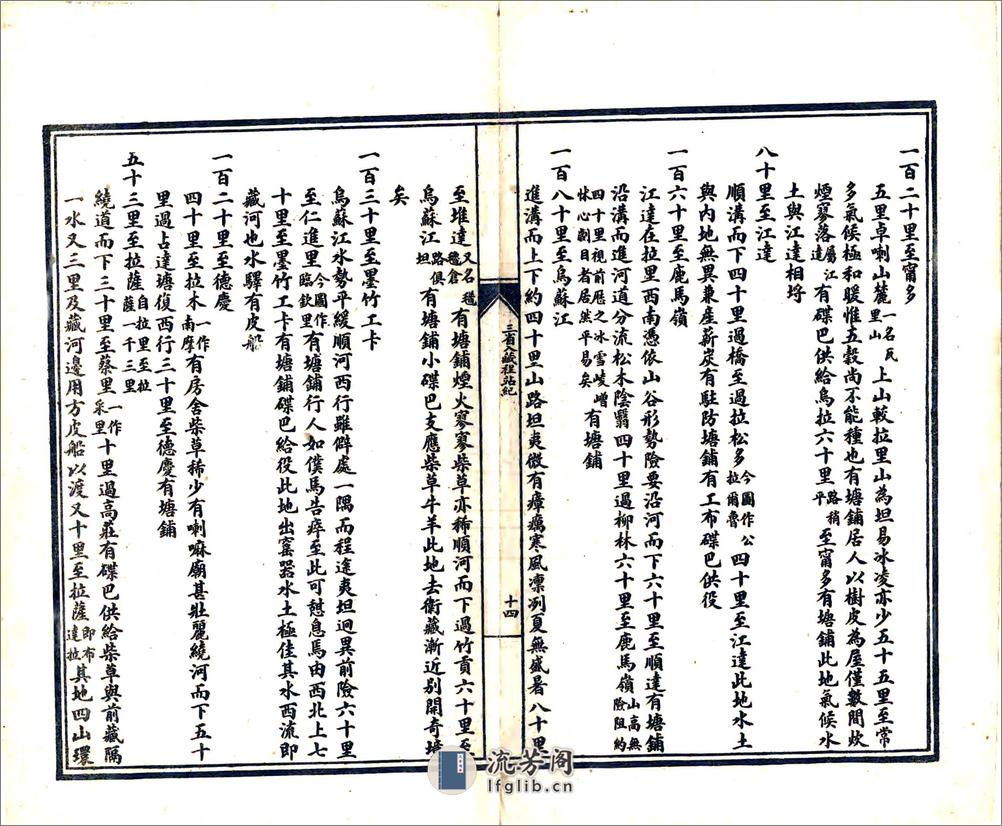 一百二十里至甯多
五里卓喇山麓一名瓦里山上山較拉里山為坦易冰凌亦少五十五里至常
多氣候極和暖惟五穀尚不能種也有塘鋪居人以樹皮為屋僅數間炊
煙寥落屬江達有碟巴供給烏拉六十里路稍平至甯多有塘鋪此地氣候水
土與江達相埒
八十里至江達
順溝而下四十里過橋至過拉松多今圖作公拉爾魯四十里至江達此地水土
與內地無異兼產薪炭有駐防塘鋪有工布碟巴供役
一百六十里至鹿馬嶺
江達在拉里西南憑依山谷形勢險要沿河而下六十里至順達有塘鋪
沿溝而進河道分流松木陰翳四十里過柳林六十里至鹿馬嶺山高無險阻約
四十里視前歷之冰雪崚嶒怵心劌目者居然平易矣有塘鋪
一百八十里至烏蘇江
進溝而上下約四十里山路坦夷微有瘴癘寒風凜冽夏無盛暑八十里
三省入藏程站紀
十四
至堆達又名𣯶𣯶倉有塘鋪煙火寥寥柴草亦稀順河而下過竹貢六十里至
烏蘇江路俱坦有塘鋪小碟巴支應柴草牛羊此地去衛藏漸近別開奇境
矣
一百三十里至墨竹工卡
烏蘇江水勢平緩順河西行雖僻處一隅而程途夷坦迥異前險六十里
至仁進里今圖作臨欽里有塘鋪行人如僕馬告瘁至此可憩息焉由西北上七
十里至墨竹工卡有塘鋪碟巴給役此地出窰器水土極佳其水西流即
藏河也水驛有皮船
一百二十里至德慶
四十里至拉木一作南摩有房舍柴草稀少有喇嘛廟甚壯麗繞河而下五十
里過占達塘復西行三十里至德慶有塘鋪
五十三里至拉薩自拉里至拉薩一千三里
繞道而下三十里至蔡里一作采里十里過高莊有碟巴供給柴草與前藏隔
一水又三里及藏河邊用方皮船以渡又十里至拉薩即布達拉其地四山環
流芳阁
lfglib.cn